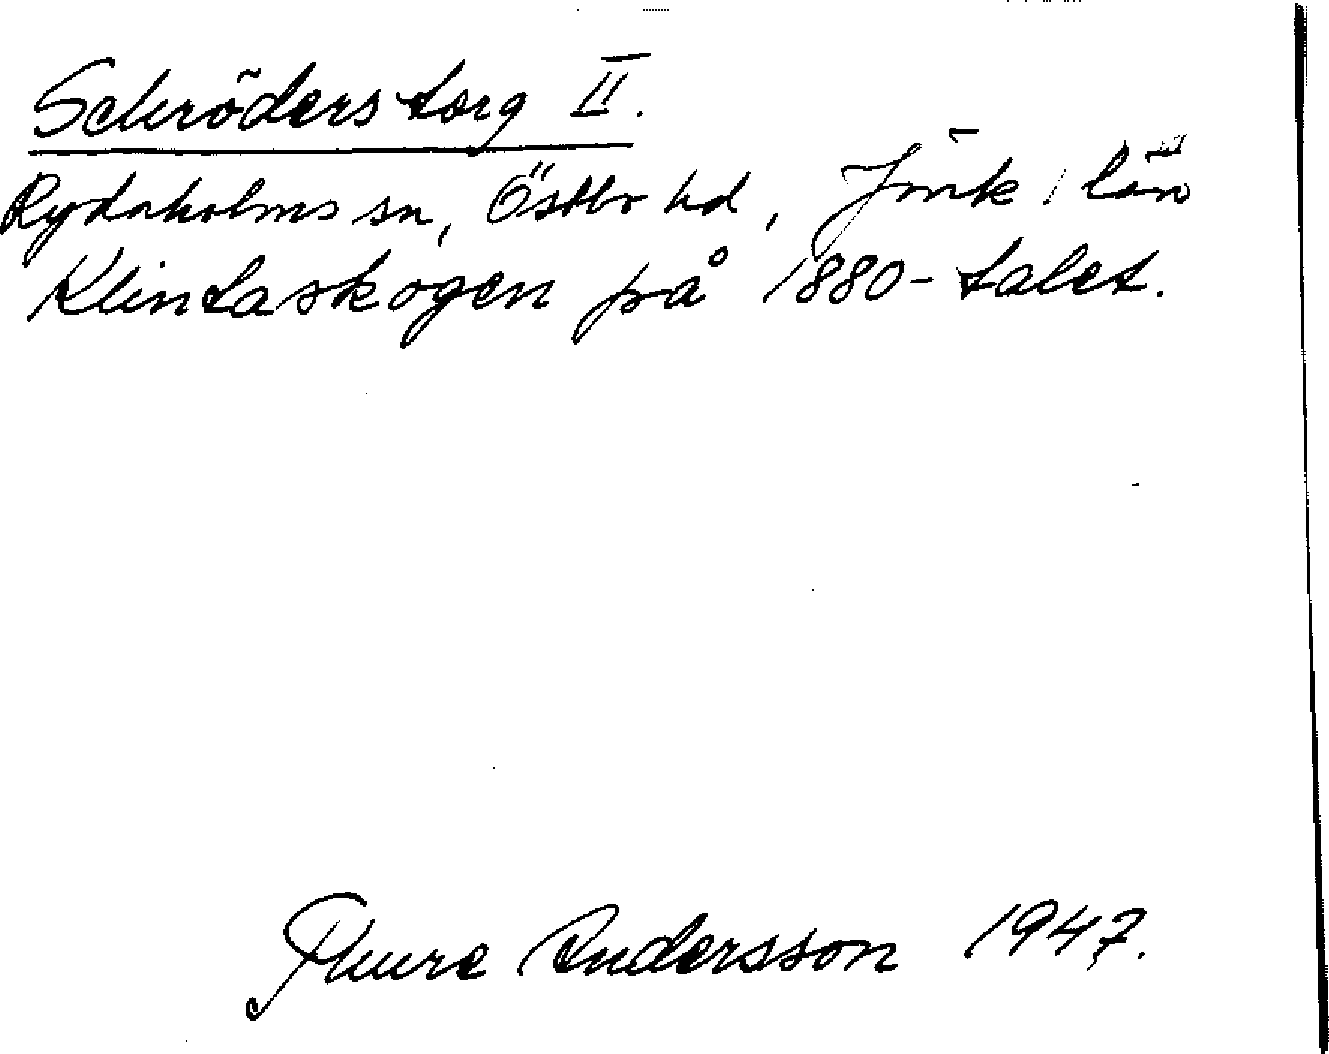 Schröderstorg II.
Rydaholms sn, Östbo hd, Jönk, län
Klintaskogen på 1880-talet.
Thure Andersson 1947.